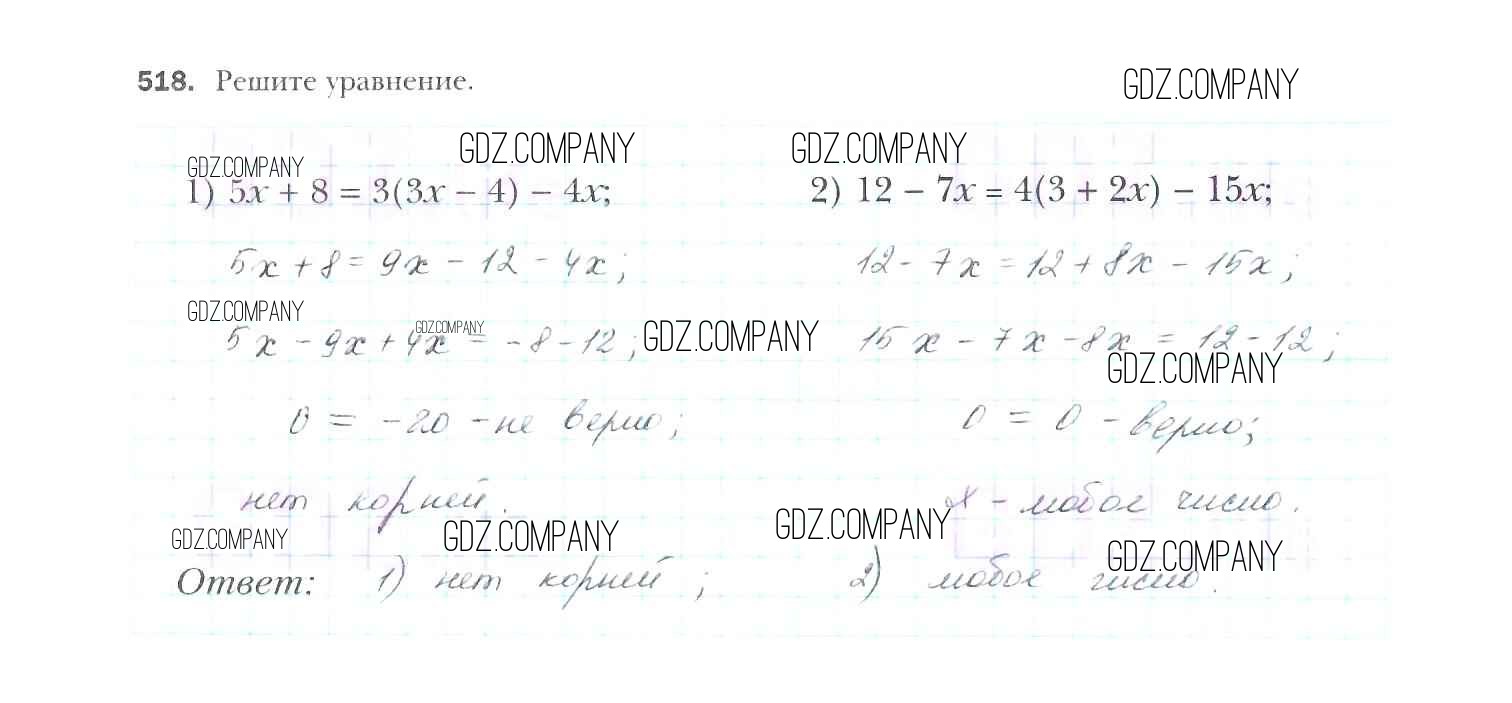 518. Решите уравнение.
GDZ.COMPANY
GDZ.COMPANY
GDZ.COMPANY
GDZ.COMPANY
1) 5x + 8 = 3(3x − 4) − 4x;
2) 12 − 7x = 4(3 + 2x) − 15x;
5x + 8 = 9x − 12 − 4x;
12 − 7x = 12 + 8x − 15x;
GDZ.COMPANY
GDZ.COMPANY
GDZ.COMPANY
5x − 9x + 4x = −8 − 12;
15x − 7x − 8x = 12 − 12;
GDZ.COMPANY
0 = −20 − не верно;
0 = 0 − верно;
нет корней.
x − любое число.
GDZ.COMPANY
GDZ.COMPANY
GDZ.COMPANY
GDZ.COMPANY
Ответ: 1) нет корней; 2) любое число.